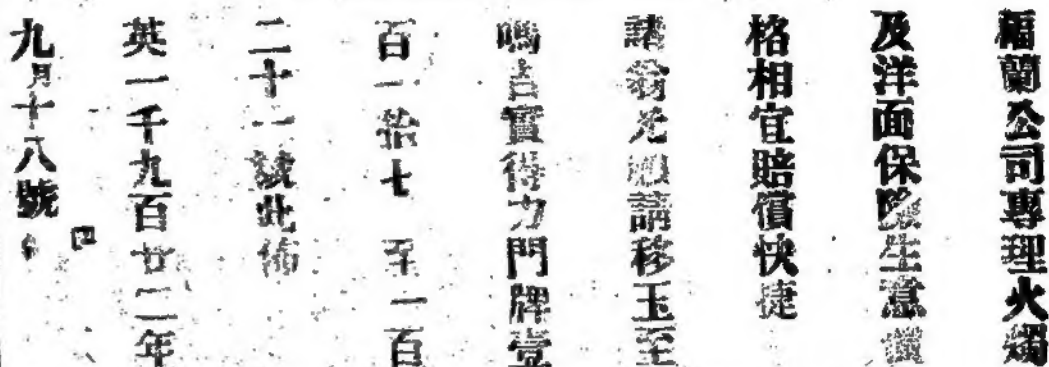 福蘭公司專理火燭
及洋面保險生意價
格相宜賠償快捷
諸翁光顧請移玉至
嗎吉寶得力門牌壹
百一拾七 至一百
二十一號此佈
英一千九百廿二年
九月十八號